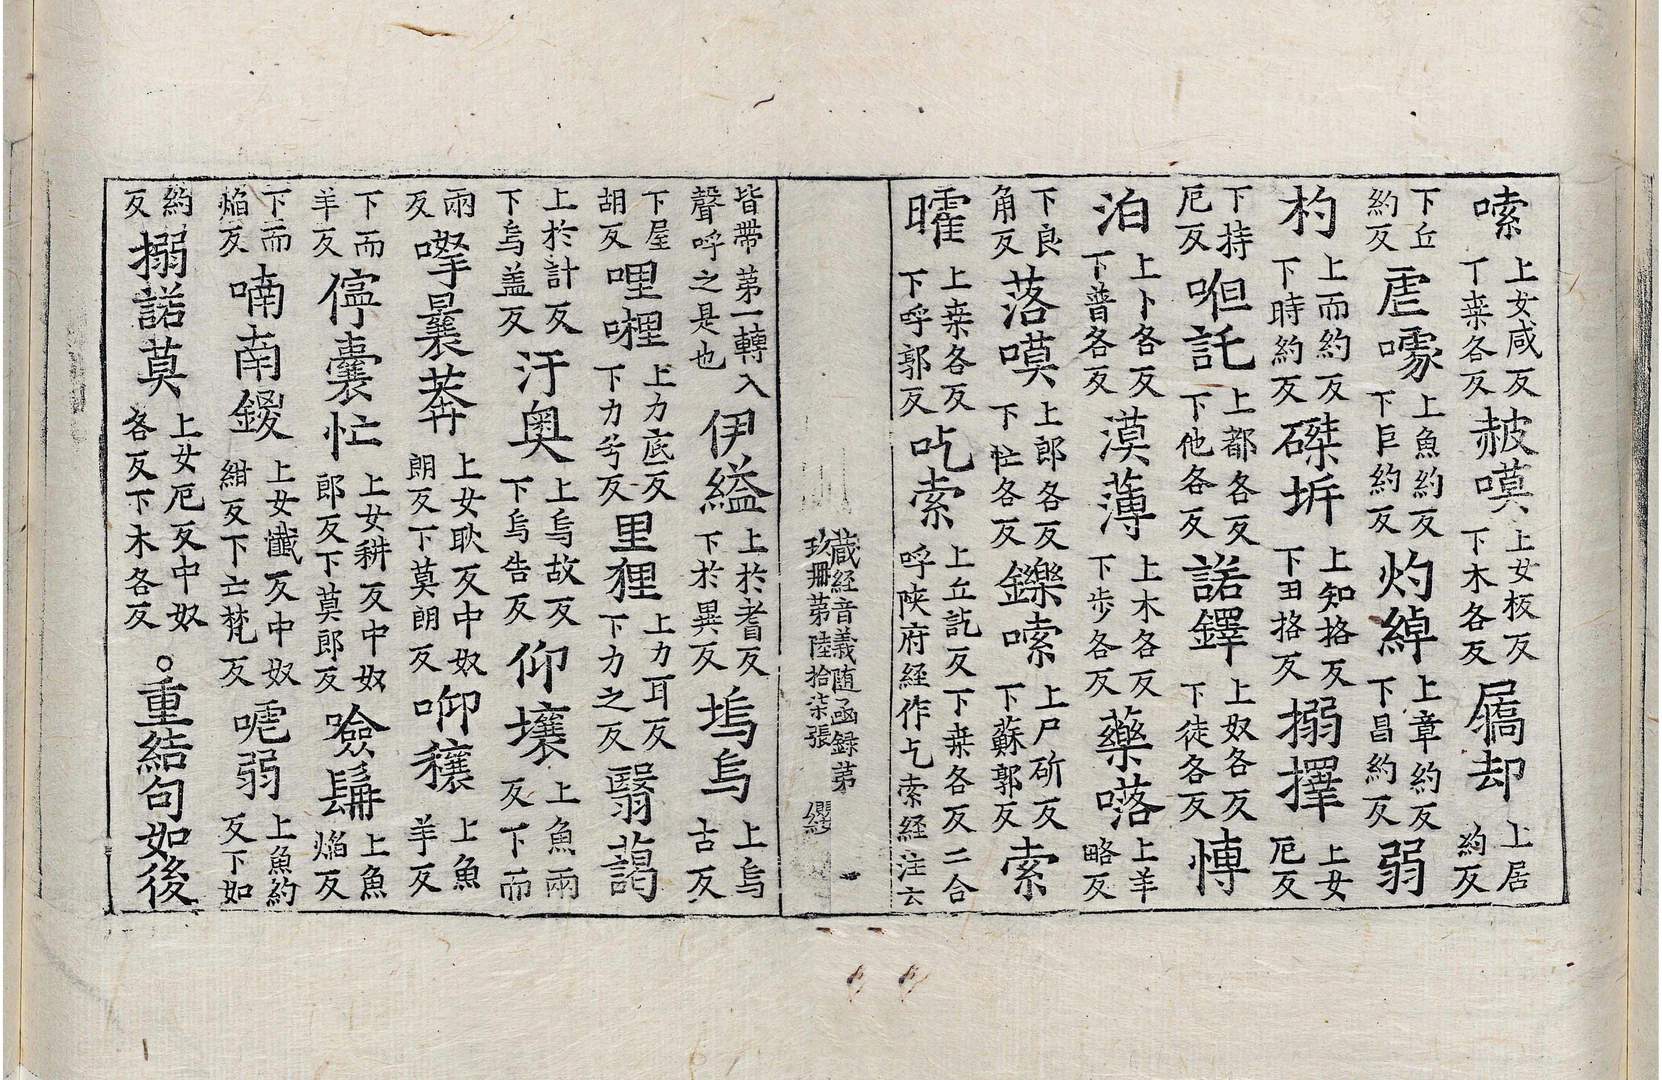 嗦上女咸反丅桒各反赦嗼上女板反下木各反屩却上居約反
下丘約反虐噱上魚約反下巨約反灼綽上章約反下昌約反弱
杓上而約反下時約反磔坼上知挌反下田挌反搦擇上女厄反
下持厄反咀託上都各反下他各反諾鐸上奴各反下徒各反愽
泊上卜各反下普各反漠薄上木各反下歩各反藥㗉上羊略反
下良角反落嗼上郎各反下忙各反鑠嗦上尸斫反下蘇郭反索
曤上桒各反下呼郭反吃索上丘訖反下桒各反二合呼陜府経作乞索経注云
蔵経音義随函録第玖冊第陸拾柒張 纓
皆帶第一轉入聲呼之是也伊縊上於耆反下於異反塢烏上烏古反
下屋胡反哩𡄇上力底反下力兮反里狸上力耳反下力之反翳藹
上於計反下烏盖反汙奥上烏故反下烏告反仰壤上魚兩反下而
兩反㗴曩莽上女耿反中奴朗反下莫朗反㖮穰上魚羊反
下而羊反儜囊忙上女耕反中奴郎反下莫郎反噞髯上魚焔反
下而焔反喃南鍐上女懺反中奴紺反下亡梵反𠺝弱上魚約反下如
約反搦諾莫上女厄反中奴各反下木各反○重結句如後